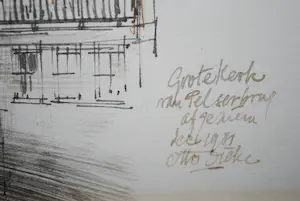 Grote Kerk
van Pelserbrug
af gezien
dec 1981
Otto Dicke